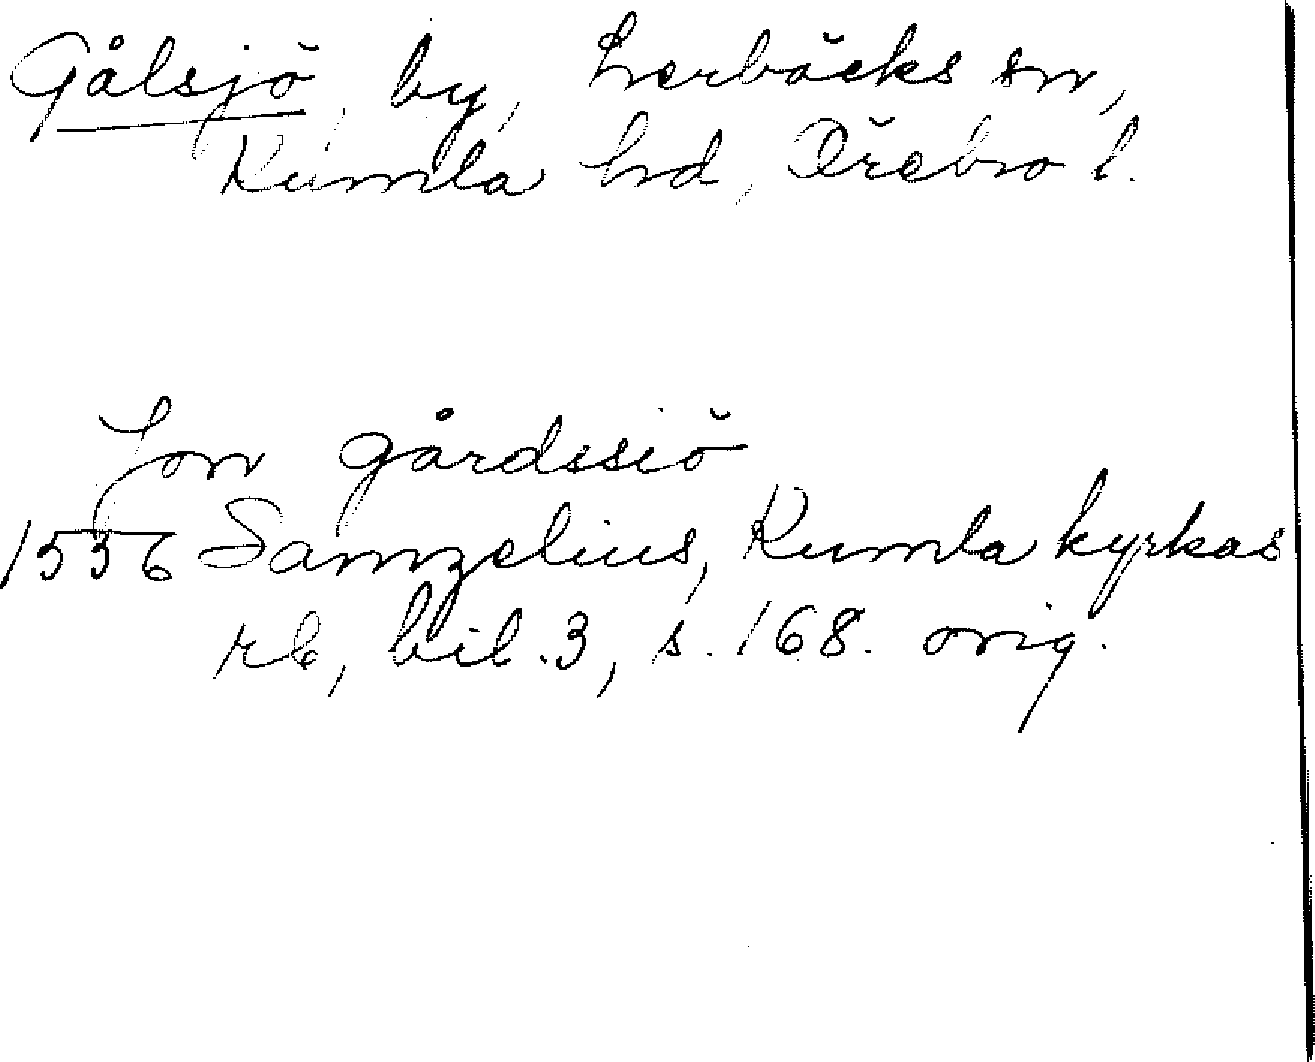 Gålsjö, by, Lerbäcks sn,
Kumla hd, Örebro l.
Jon gårdssiö
1556 Samzelius, Kumla kyrkas
rb, bil. 3, s. 168. orig.